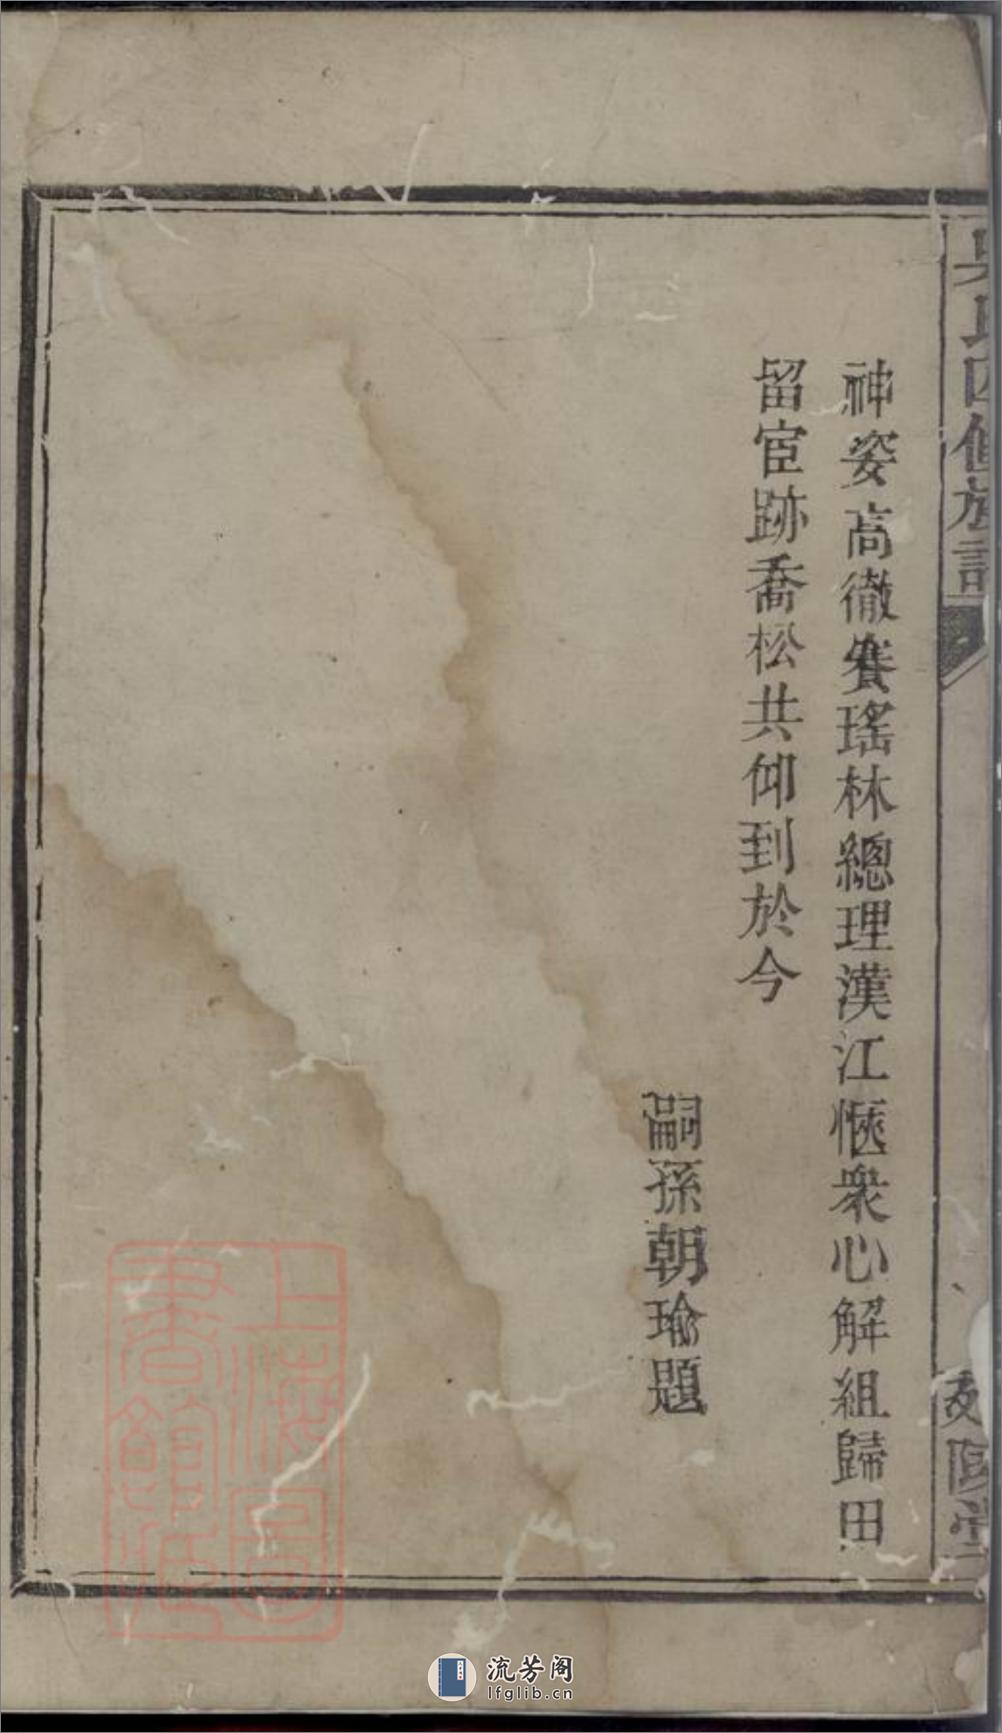 吳氏四修族譜
敦陞堂
神姿高徹賽瑤林總理漢江愜衆心解組歸田
留宦跡喬松共仰到於今
嗣孫朝瑜題
上海圖
書館藏
流芳阁
lfglib.cn